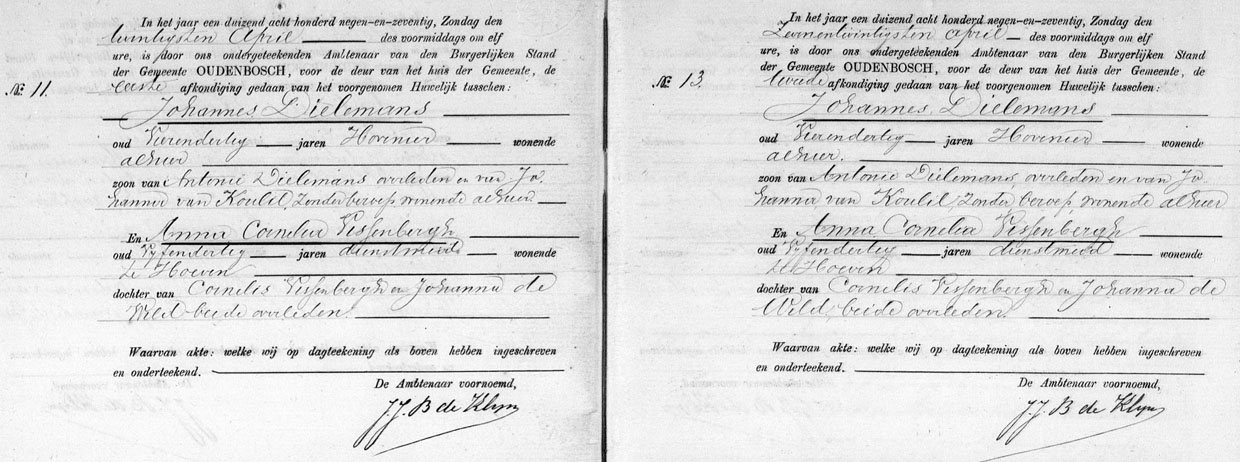 In het jaar een duizend acht honderd negen-en-zeventig, Zondag den
twintigsten April des voormiddags om elf
ure, is door ons ondergeteekenden Ambtenaar van den Burgerlijken Stand
der Gemeente OUDENBOSCH, voor de deur van het huis der Gemeente, de
№ 11. eerste afkondiging gedaan van het voorgenomen Huwelijk tusschen:
Johannes Dielemans
oud Vierendertig jaren Hovenier wonende
alhier
zoon van Antonie Dielemans overleden en van Jo-
hanna van Koulil, zonder beroep, wonende alhier
En Anna Cornelia Vissenbergh
oud Vijfendertig jaren dienstmeid wonende
te Hoeven
dochter van Cornelis Vissenbergh en Johanna de
Wild beide overleden.
Waarvan akte: welke wij op dagteekening als boven hebben ingeschreven
en onderteekend.
De Ambtenaar voornoemd,
J. J. B de Klyn
In het jaar een duizend acht honderd negen-en-zeventig, Zondag den
Zevenentwintigsten April des voormiddags om elf
ure, is door ons ondergeteekenden Ambtenaar van den Burgerlijken Stand
der Gemeente OUDENBOSCH, voor de deur van het huis der Gemeente, de
№ 13. tweede afkondiging gedaan van het voorgenomen Huwelijk tusschen:
Johannes Dielemans
oud Vierendertig jaren Hovenier wonende
alhier.
zoon van Antonie Dielemans, overleden en van Jo-
hanna van Koulil, zonder beroep, wonende alhier
En Anna Cornelia Vissenbergh
oud Vijfendertig jaren dienstmeid wonende
te Hoeven
dochter van Cornelis Vissenbergh en Johanna de
Wild, beide overleden.
Waarvan akte: welke wij op dagteekening als boven hebben ingeschreven
en onderteekend.
De Ambtenaar voornoemd,
J. J. B de Klyn